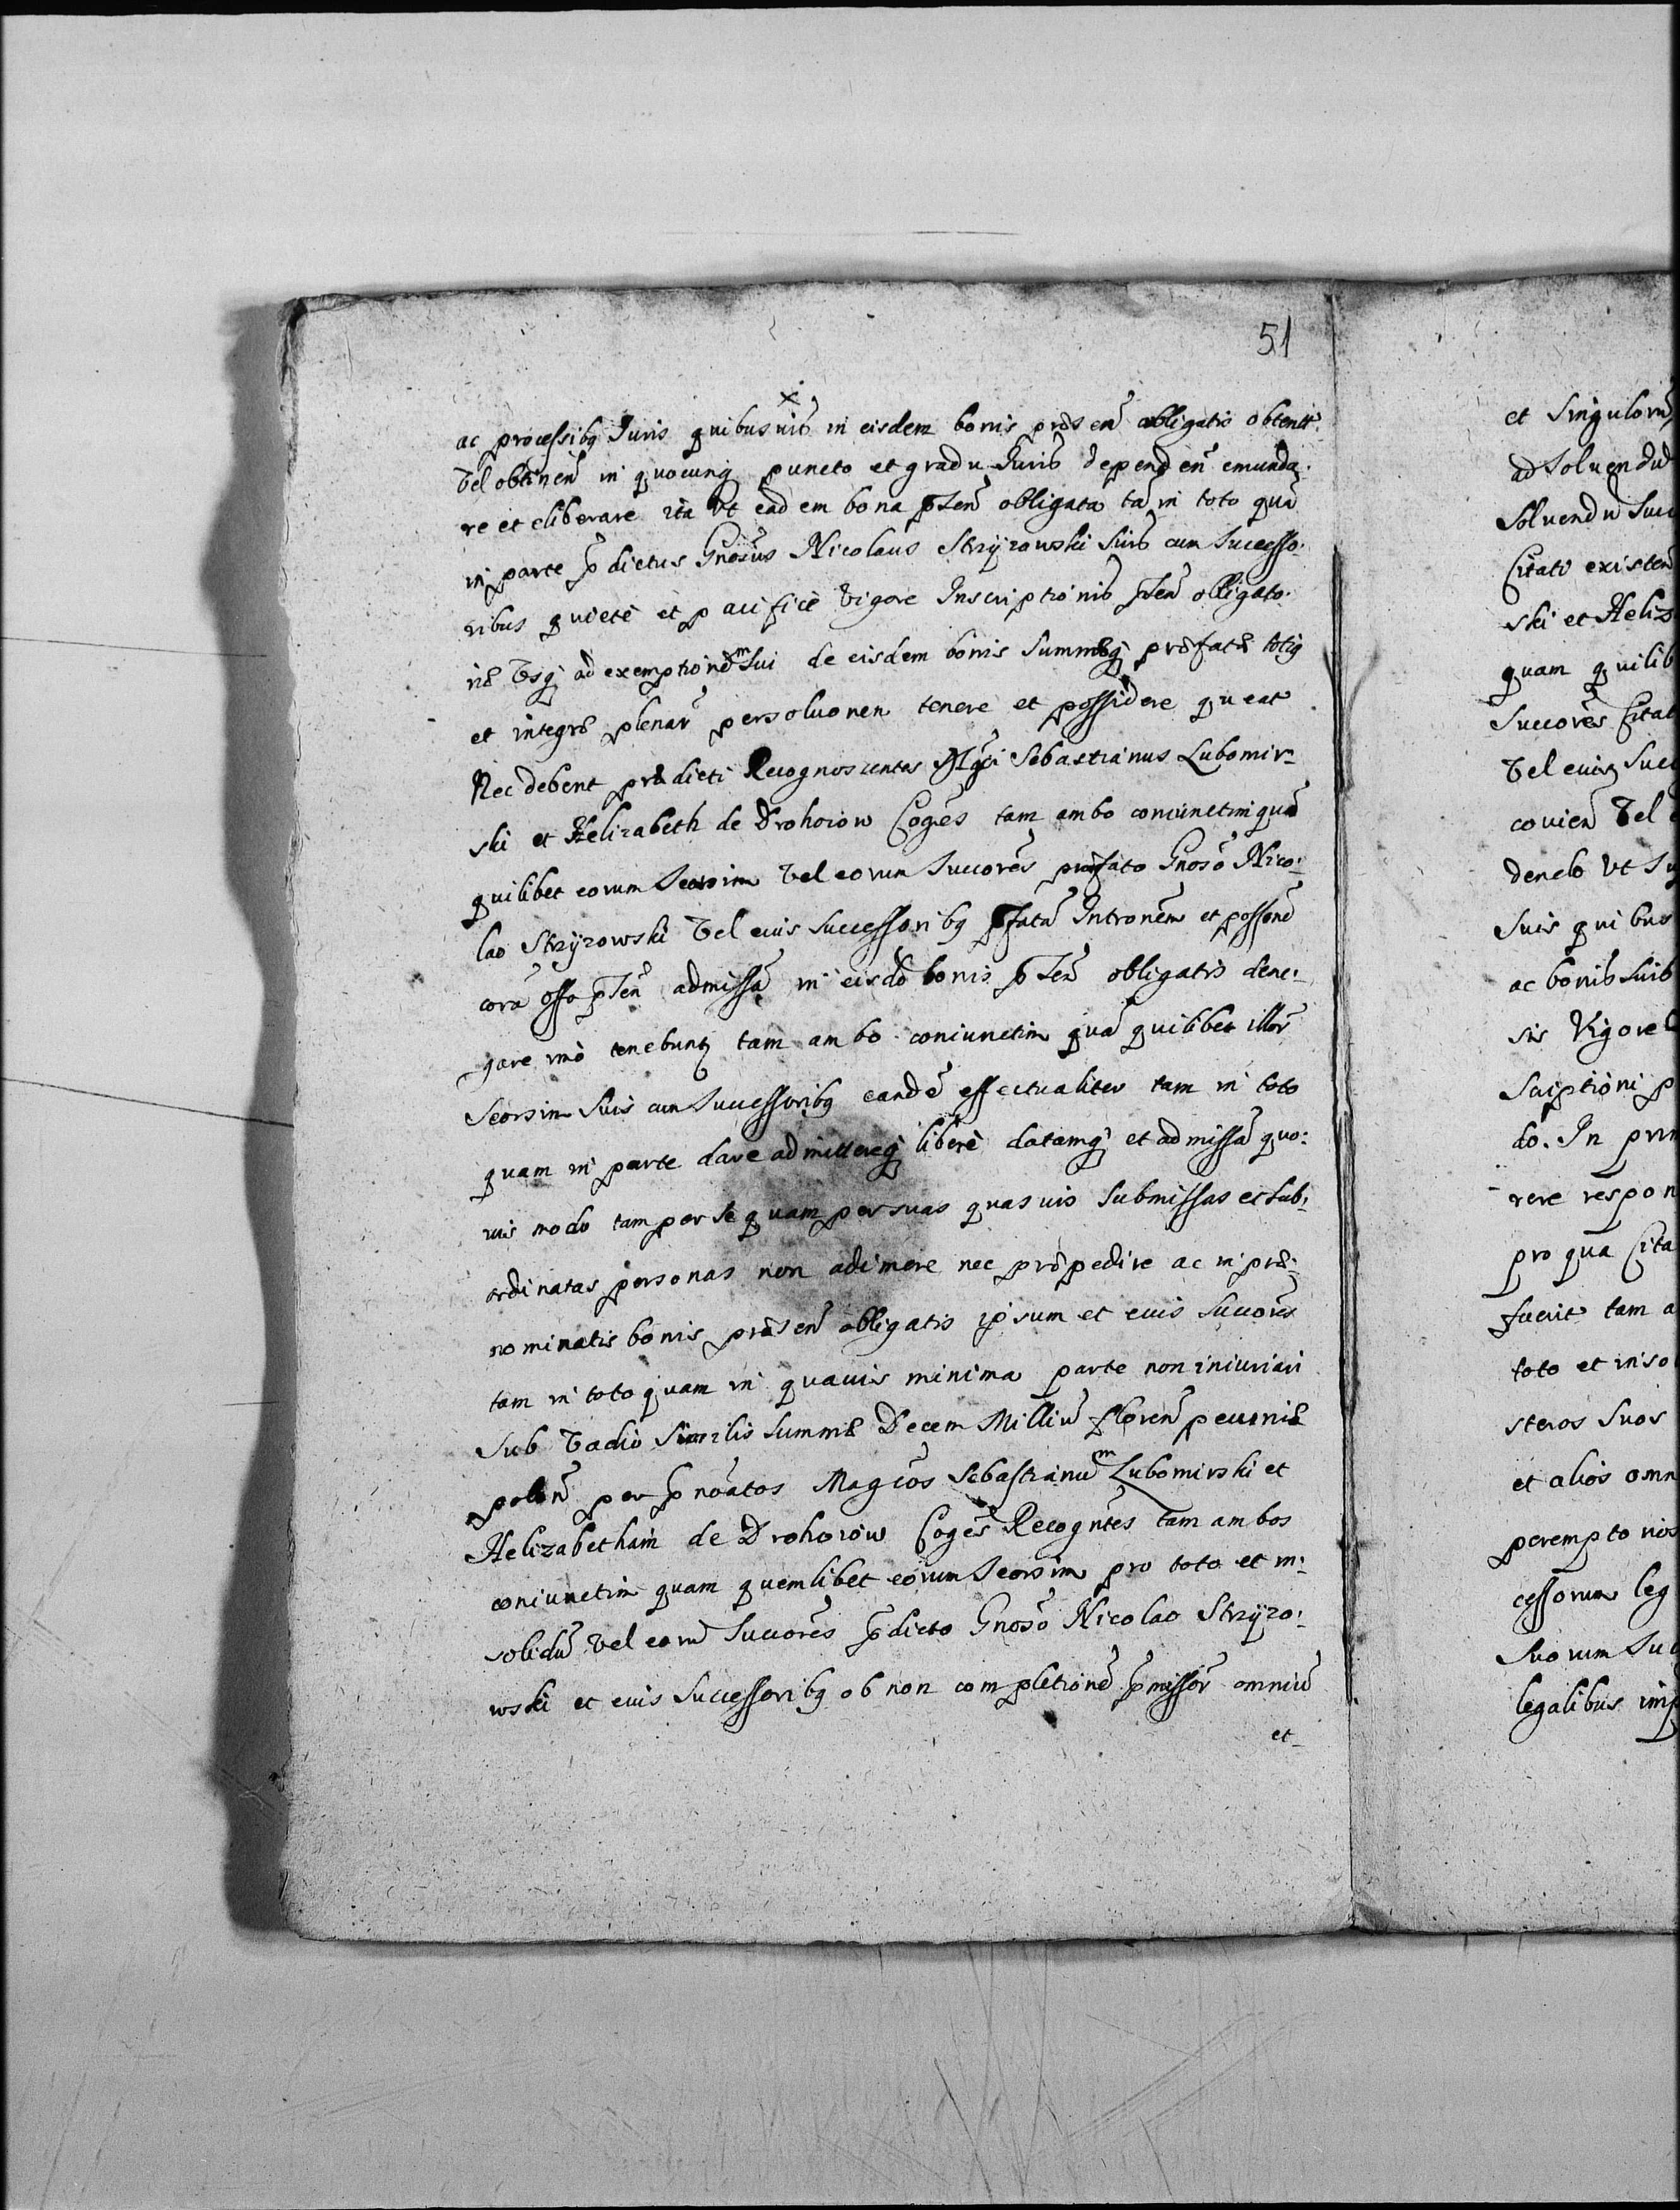 51
ac processibq Juris quibusuis in eisdem bonis præsen̄ obligatis obtent̄
vel obtinen̄ in quocunq puncto et gradu Juris dependen̄ emunda:
re et eliberare ita vt eadem bona p̄sen̄ obligata tā in toto quā
in parte p̄dictus Gnosus Nicolaus Stryzowski suis cum successo:
ribus quietè et pacificè vigore Inscriptionis p̄sen̄ obligato:
riæ vsq ad exemptionēm sui de eisdem bonis summæq præfatæ totiq
et integræ plenar̄ persoluonem tenere et possidere queat
Nec debent prædicti Recognoscentes Mgci Sebastianus Lubomir-
ski et Helizabeth de Drohoiow Coges̄ tam ambo coniunctim quā
quilibet eorum seorsim vel eorum succores̄ præfato Gnoso Nico:
lao Stryzowski vel eius successoribq p̄fatā Intronem̄ et possonē
corā offo p̄sen̄ admissā in eisdē bonis p̄sen̄ obligatis dene:
gare imò tenebuntq tam ambo coniunctim quā quilibet illor̄
seorsim suis cum successoribq eandē effectualiter tam in toto
quam in parte dare admittereq liberè datamq et admissā quo:
uis modo tam per se quam per suas quasuis submissas et sub:
ordinatas personas non adimere nec præpedire ac in præ:
nominatis bonis præsen̄ obligatis ipsum et eius succores̄
tam in toto quam in quauis minima parte non iniuriari
sub vadio similis summæ Decem Milliū floren̄ pecuniæ
polon̄ per p̄noatos Magcos Sebastianūm Lubomirski et
Helizabetham de Drohoiow Coges̄ Recogntes̄ tam ambos
coniunctim quam quemlibet eorum seorsim pro toto et in:
solidū vel eorū succores̄ p̄dicto Gnoso Nicolao Stryzo:
wski et eius successoribq ob non completionē p̄missor̄ omniū
et
et singulorū
ad soluendū
soluendū succ
Citati existen̄
ski et Heliz
quam quilib
succores̄ Citat
vel eiusq succ
couien̄ vel
denelo vt su
suis quibus
ac bonis suis
sis Vigore
scriptioni p
do. In prim
rere respon
pro qua Cita
fuerit tam a
toto et inso
steros suos
et alios omn
peremptorios
cessorum leg
suorum suc
legalibus imp